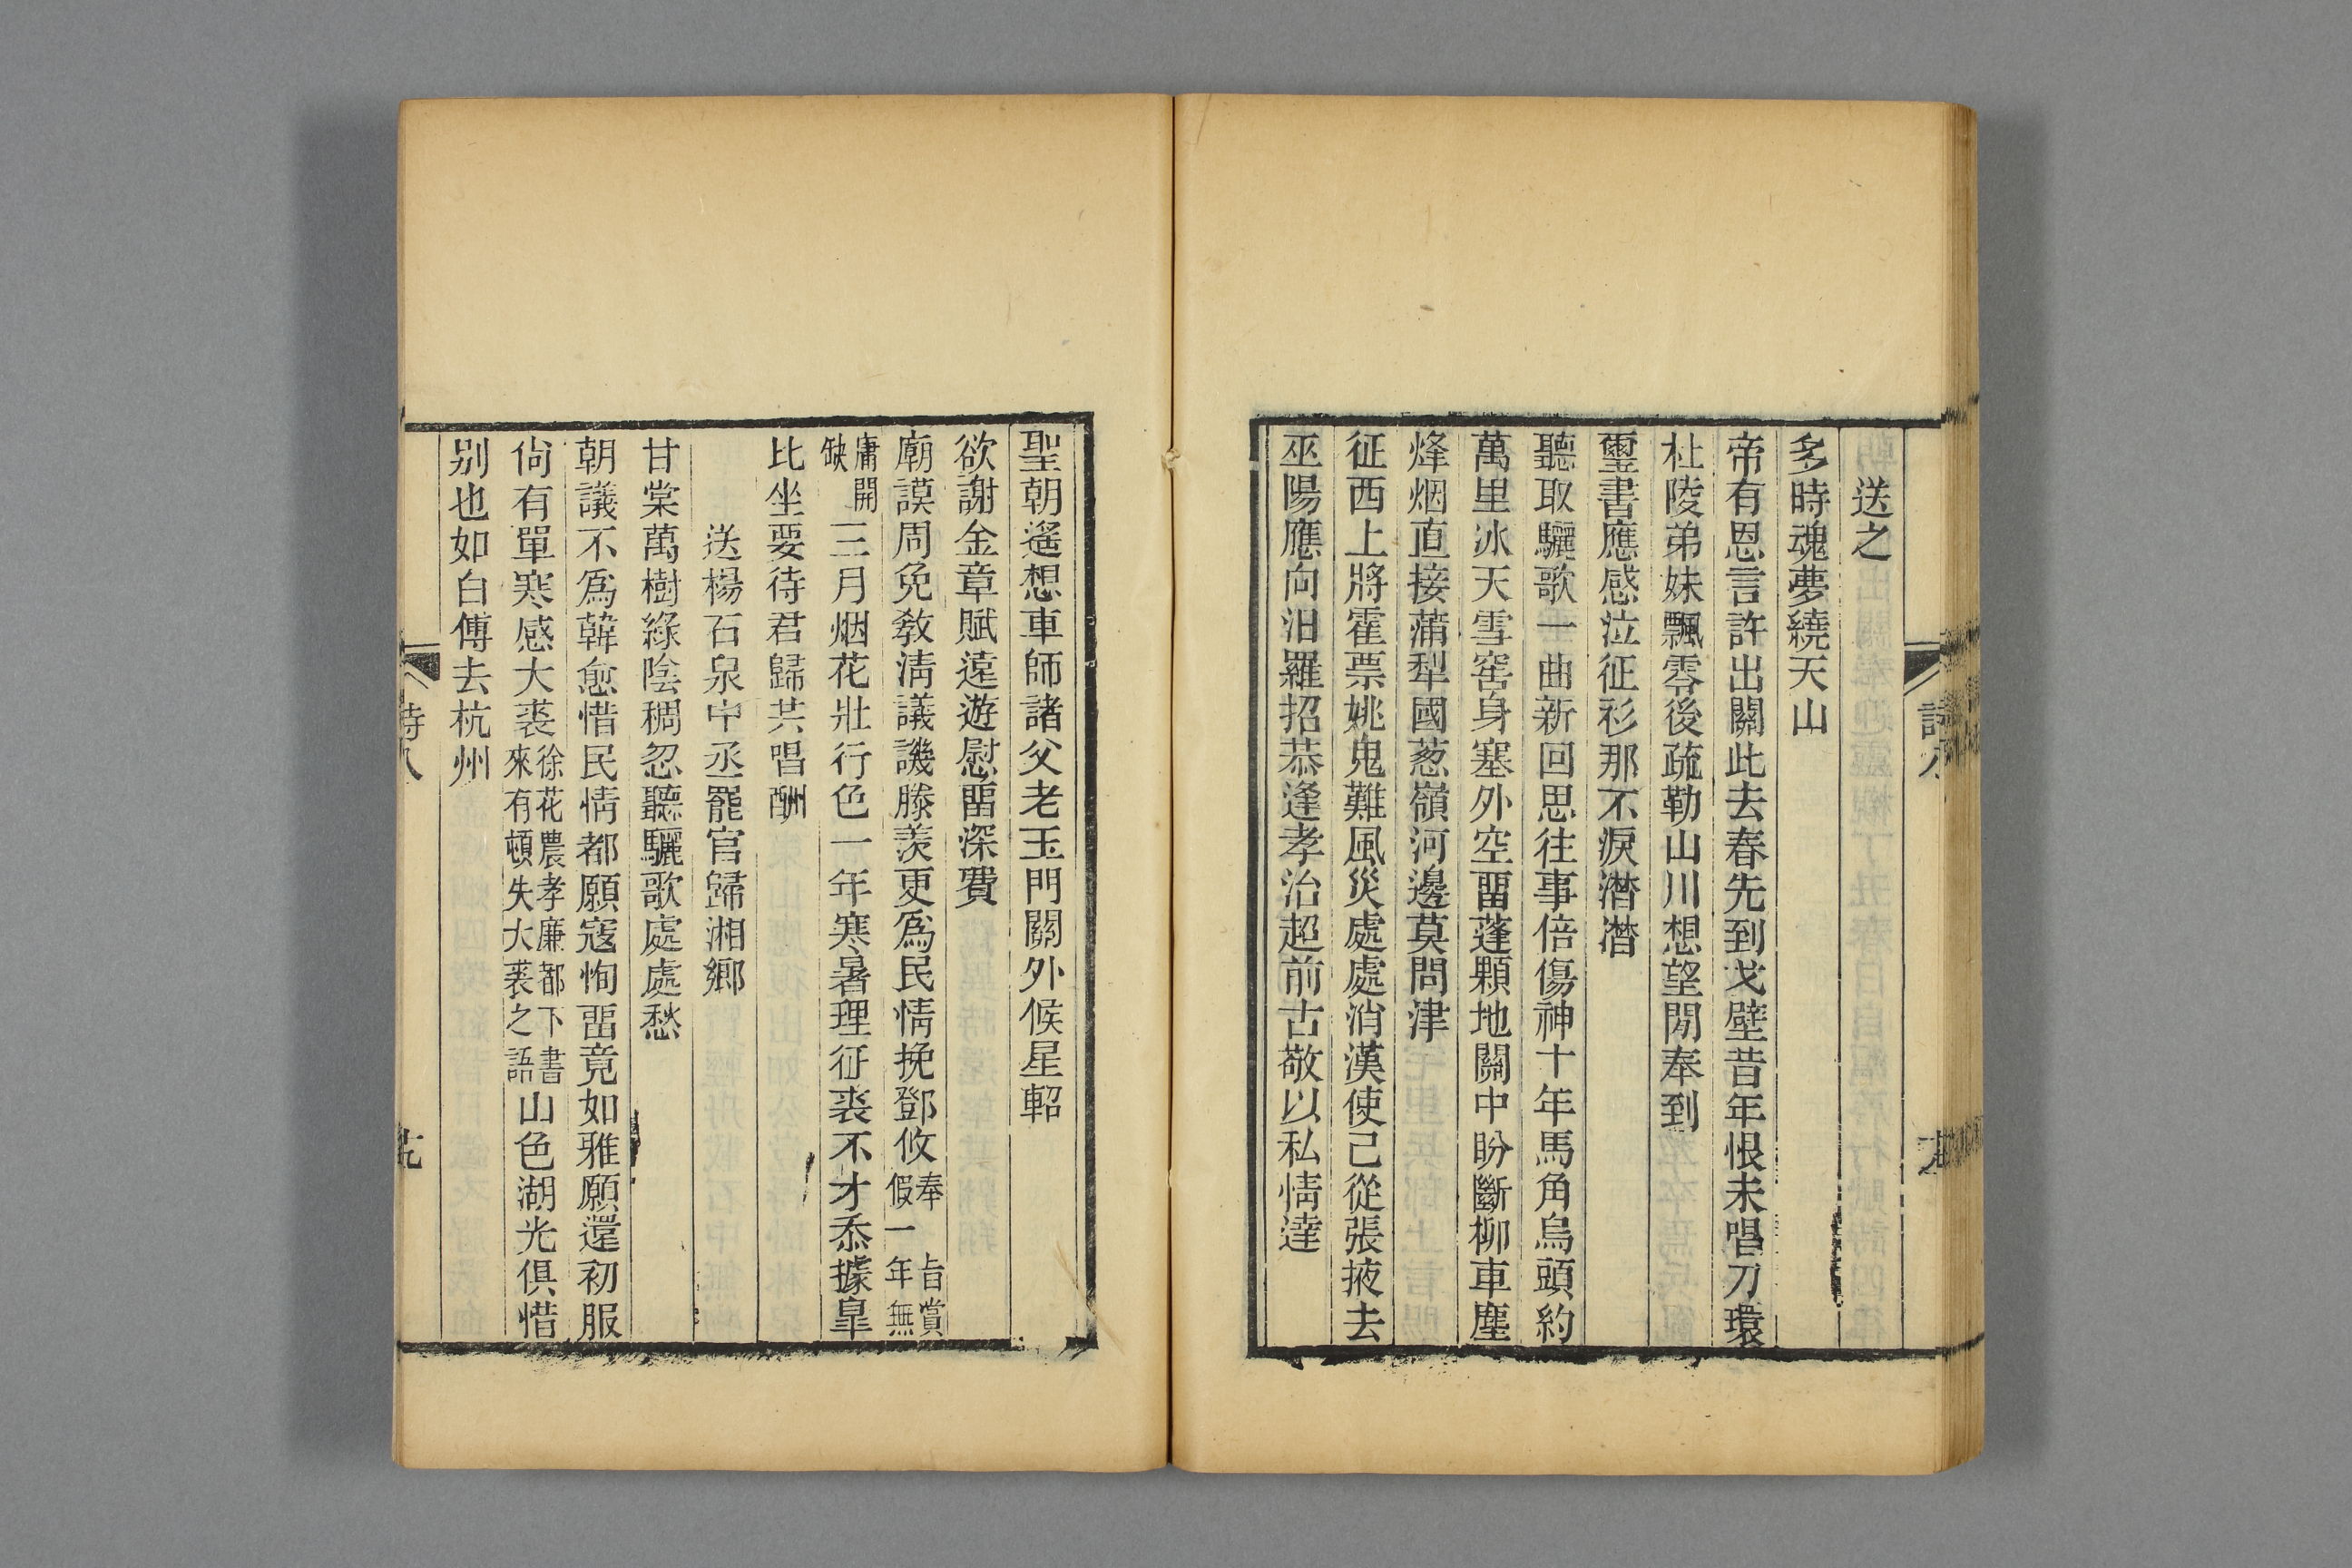 送之
多時魂夢繞天山
帝有恩言許出關此去春先到戈壁昔年恨未唱刀環
杜陵弟妹飄零後疏勒山川想望閒奉到
璽書應感泣征衫那不淚潸潸
聽取驪歌一曲新回思往事倍傷神十年馬角烏頭約
萬里冰天雪窖身塞外空畱蓬顆地關中盼斷柳車塵
烽烟直接蒲犁國葱嶺河邊莫問津
征西上將霍票姚鬼難風災處處消漢使己從張掖去
巫陽應向汨羅招恭逢孝治超前古敬以私情達
聖朝遙想車師諸父老玉門關外候星軺
欲謝金章賦遠遊慰畱深費
廟謨周免敎淸議譏滕羨更爲民情挽鄧攸奉 旨賞假一年無
庸開缺三月烟花壯行色一年寒暑理征裘不才忝據皐
比坐要待君歸共唱酬
送楊石泉中丞罷官歸湘鄉
甘棠萬樹綠陰稠忍聽驪歌處處愁
朝議不爲韓愈惜民情都願寇恂畱竟如雅願還初服
尙有單寒感大裘徐花農孝廉都下書來有頓失大裘之語山色湖光俱惜
别也如白傅去杭州